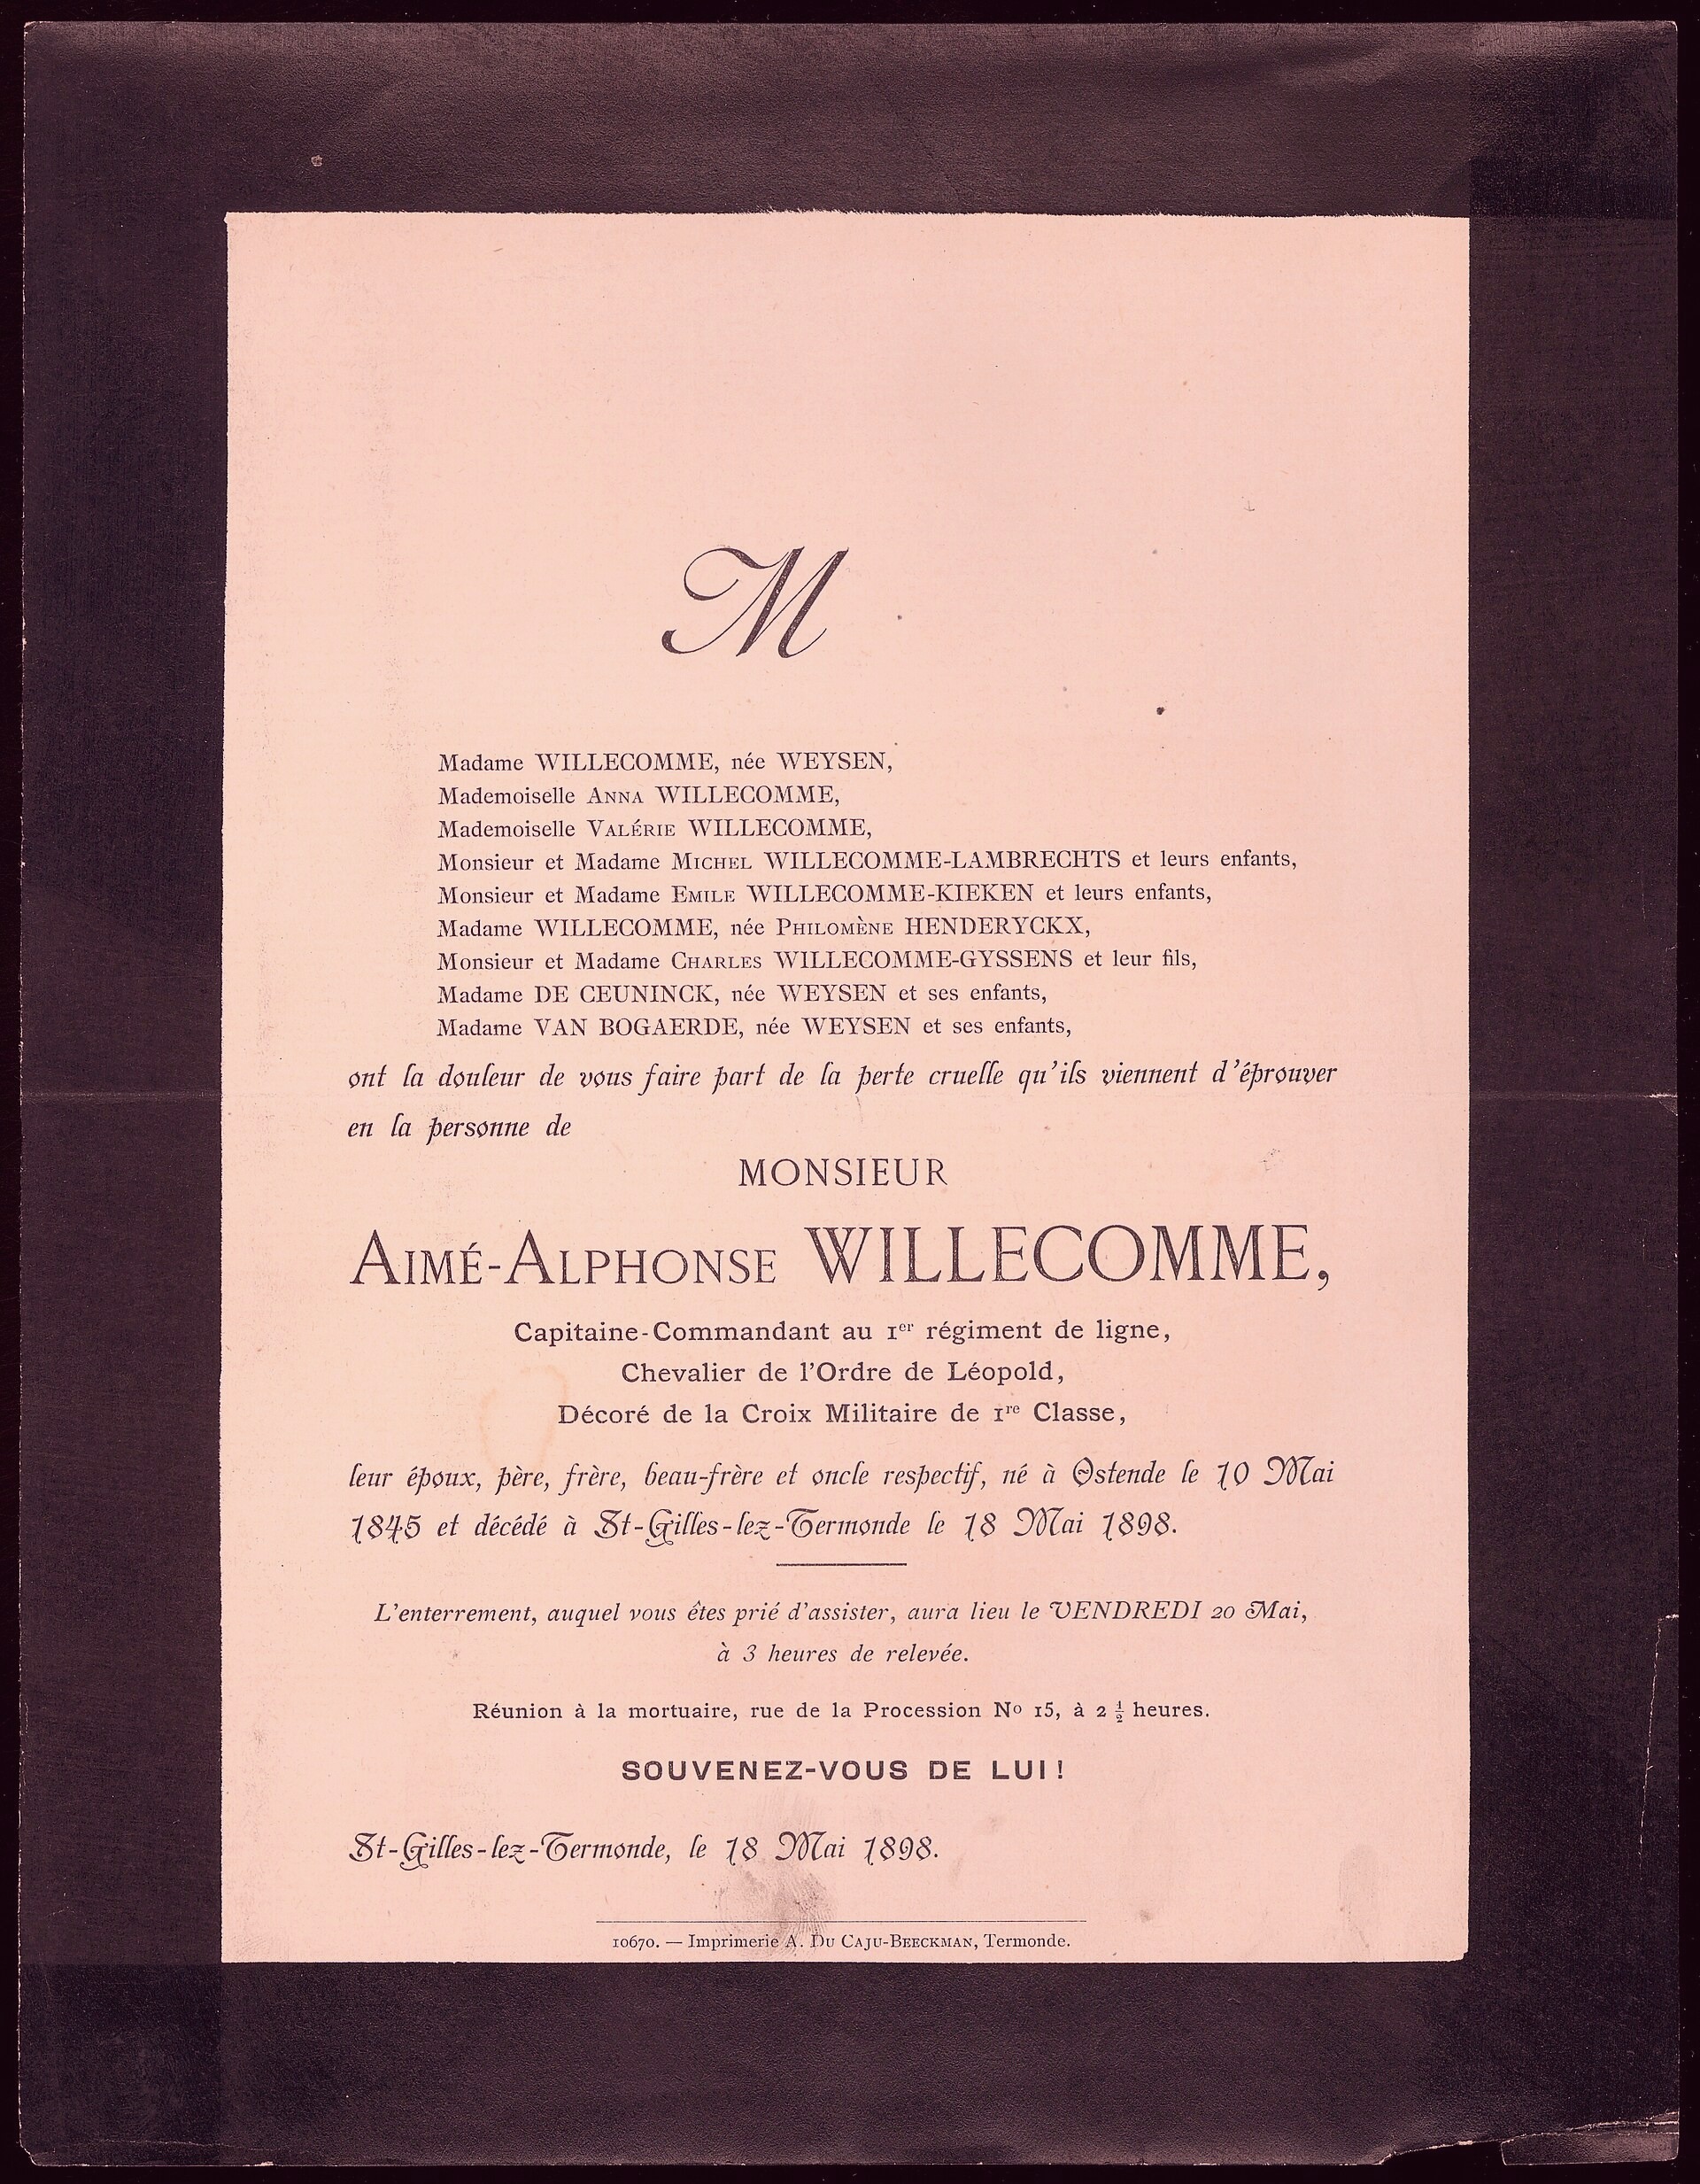 M
Madame WILLECOMME, née WEYSEN,
Mademoiselle ANNA WILLECOMME,
Mademoiselle VALÉRIE WILLECOMME,
Monsieur et Madame MICHEL WILLECOMME-LAMBRECHTS et leurs enfants,
Monsieur et Madame EMILE WILLECOMME-KIEKEN et leurs enfants,
Madame WILLECOMME, née PHILOMÈNE HENDERYCKX,
Monsieur et Madame CHARLES WILLECOMME-GYSSENS et leur fils,
Madame DE CEUNINCK, née WEYSEN et ses enfants,
Madame VAN BOGAERDE, née WEYSEN et ses enfants,
ont la douleur de vous faire part de la perte cruelle qu'ils viennent d'éprouver
en la personne de
MONSIEUR
AIMÉ-ALPHONSE WILLECOMME,
Capitaine-Commandant au 1er régiment de ligne,
Chevalier de l'Ordre de Léopold,
Décoré de la Croix Militaire de 1re Classe,
leur époux, père, frère, beau-frère et oncle respectif, né à Ostende le 10 Mai
1845 et décédé à St-Gilles-lez-Termonde le 18 Mai 1898.
L'enterrement, auquel vous êtes prié d'assister, aura lieu le VENDREDI 20 Mai,
à 3 heures de relevée.
Réunion à la mortuaire, rue de la Procession No 15, à 2 ½ heures.
SOUVENEZ-VOUS DE LUI !
St-Gilles-lez-Termonde, le 18 Mai 1898.
10670. — Imprimerie A. DU CAJU-BEECKMAN, Termonde.